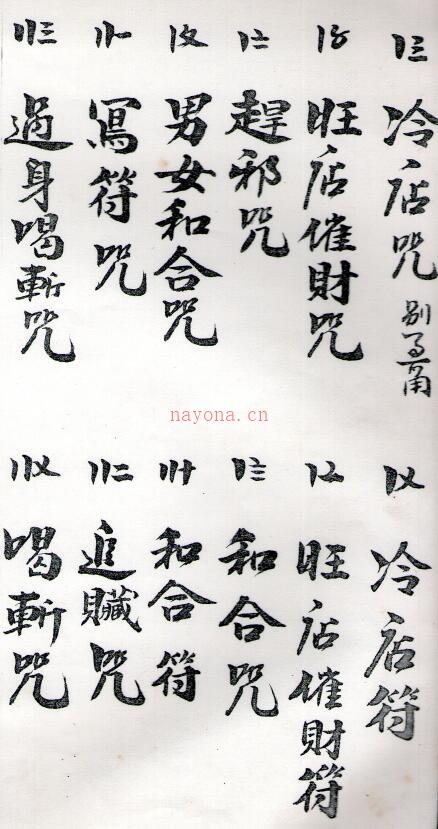 〡三
冷店咒
〡〤
冷店符
〡〥
旺店催財咒
〡〦
旺店催財符
〡〧
趕邪咒
〡〨
和合咒
〡〩
男女和合咒
〢十
和合符
〢一
寫符咒
〢二
追贓咒
〢三
過身喝斬咒
〢〤
喝斬咒
nayona.cn